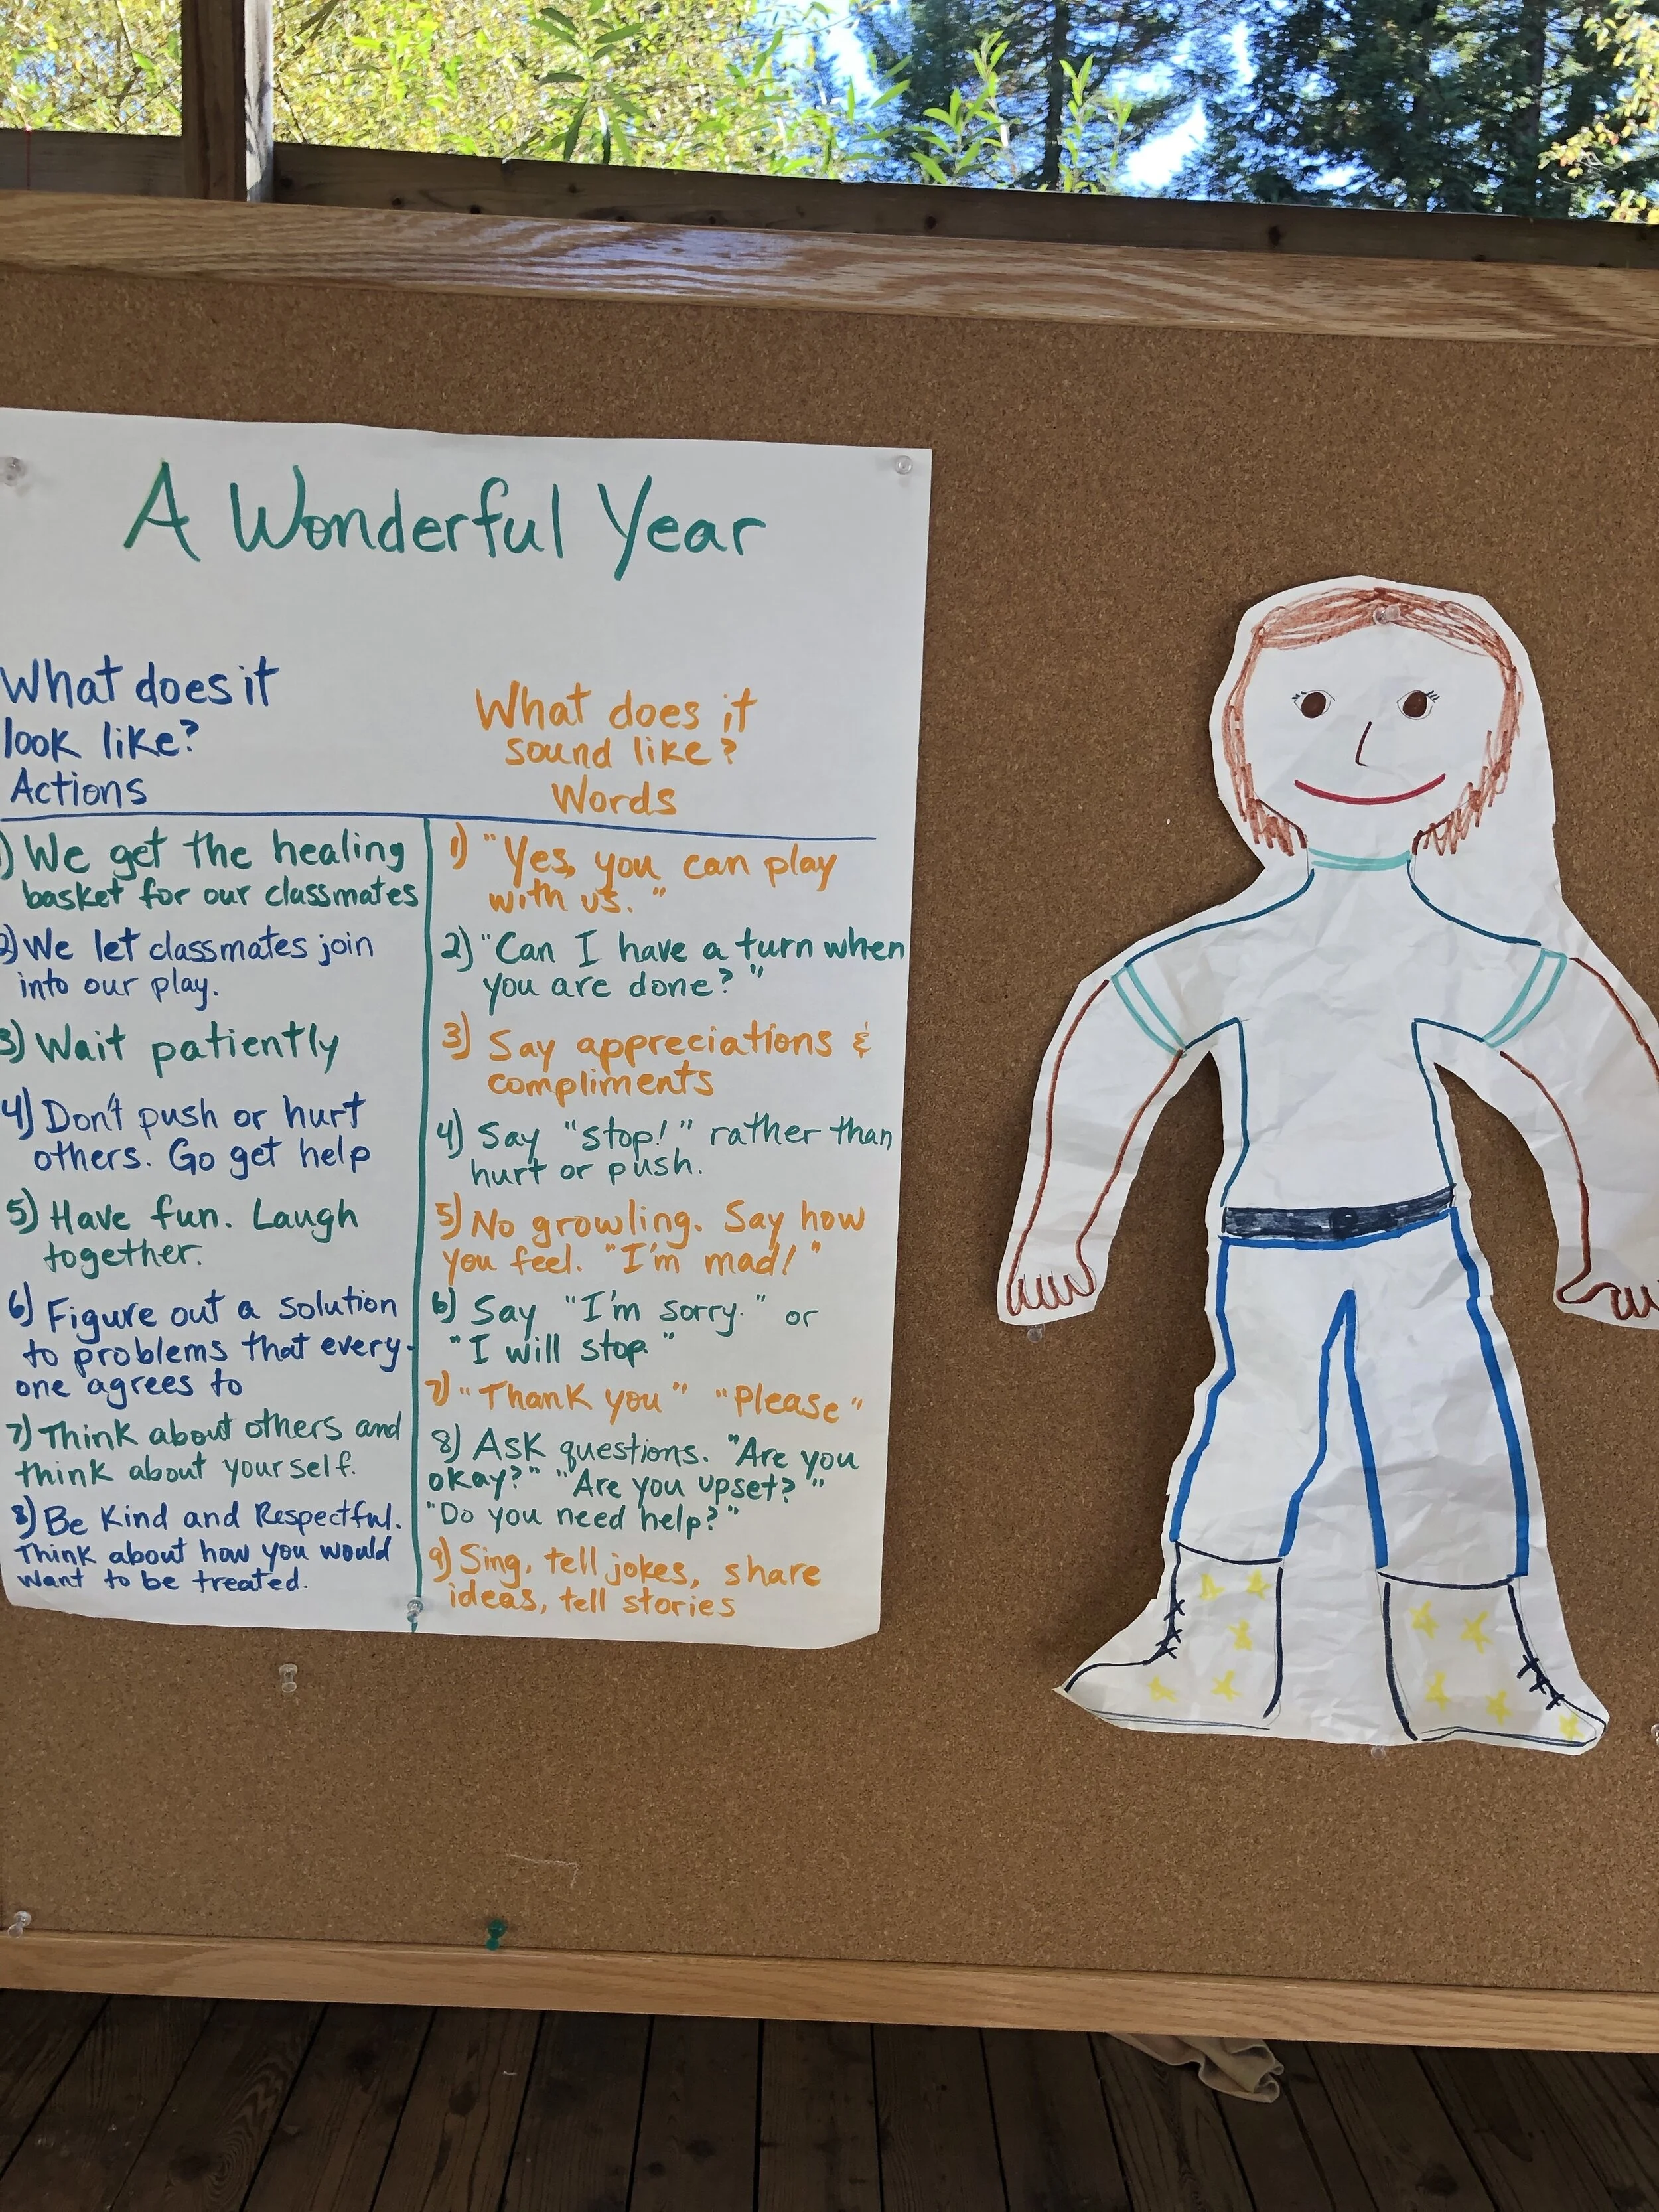 A Wonderful Year
What does it
look like?
Actions
1) We get the healing
basket for our classmates
2) We let classmates join
into our play.
3) Wait patiently
4) Don't push or hurt
others. Go get help
5) Have fun. Laugh
together.
6) Figure out a solution
to problems that every-
one agrees to
7) Think about others and
think about yourself.
8) Be Kind and Respectful.
Think about how you would
want to be treated.
What does it
sound like?
Words
1) "Yes, you can play
with us."
2) "Can I have a turn when
you are done?"
3) Say appreciations &
compliments
4) Say "stop!" rather than
hurt or push.
5) No growling. Say how
you feel. "I'm mad!"
6) Say "I'm sorry." or
"I will stop."
7) "Thank you" "Please"
8) Ask questions. "Are you
okay?" "Are you upset?"
"Do you need help?"
9) Sing, tell jokes, share
ideas, tell stories